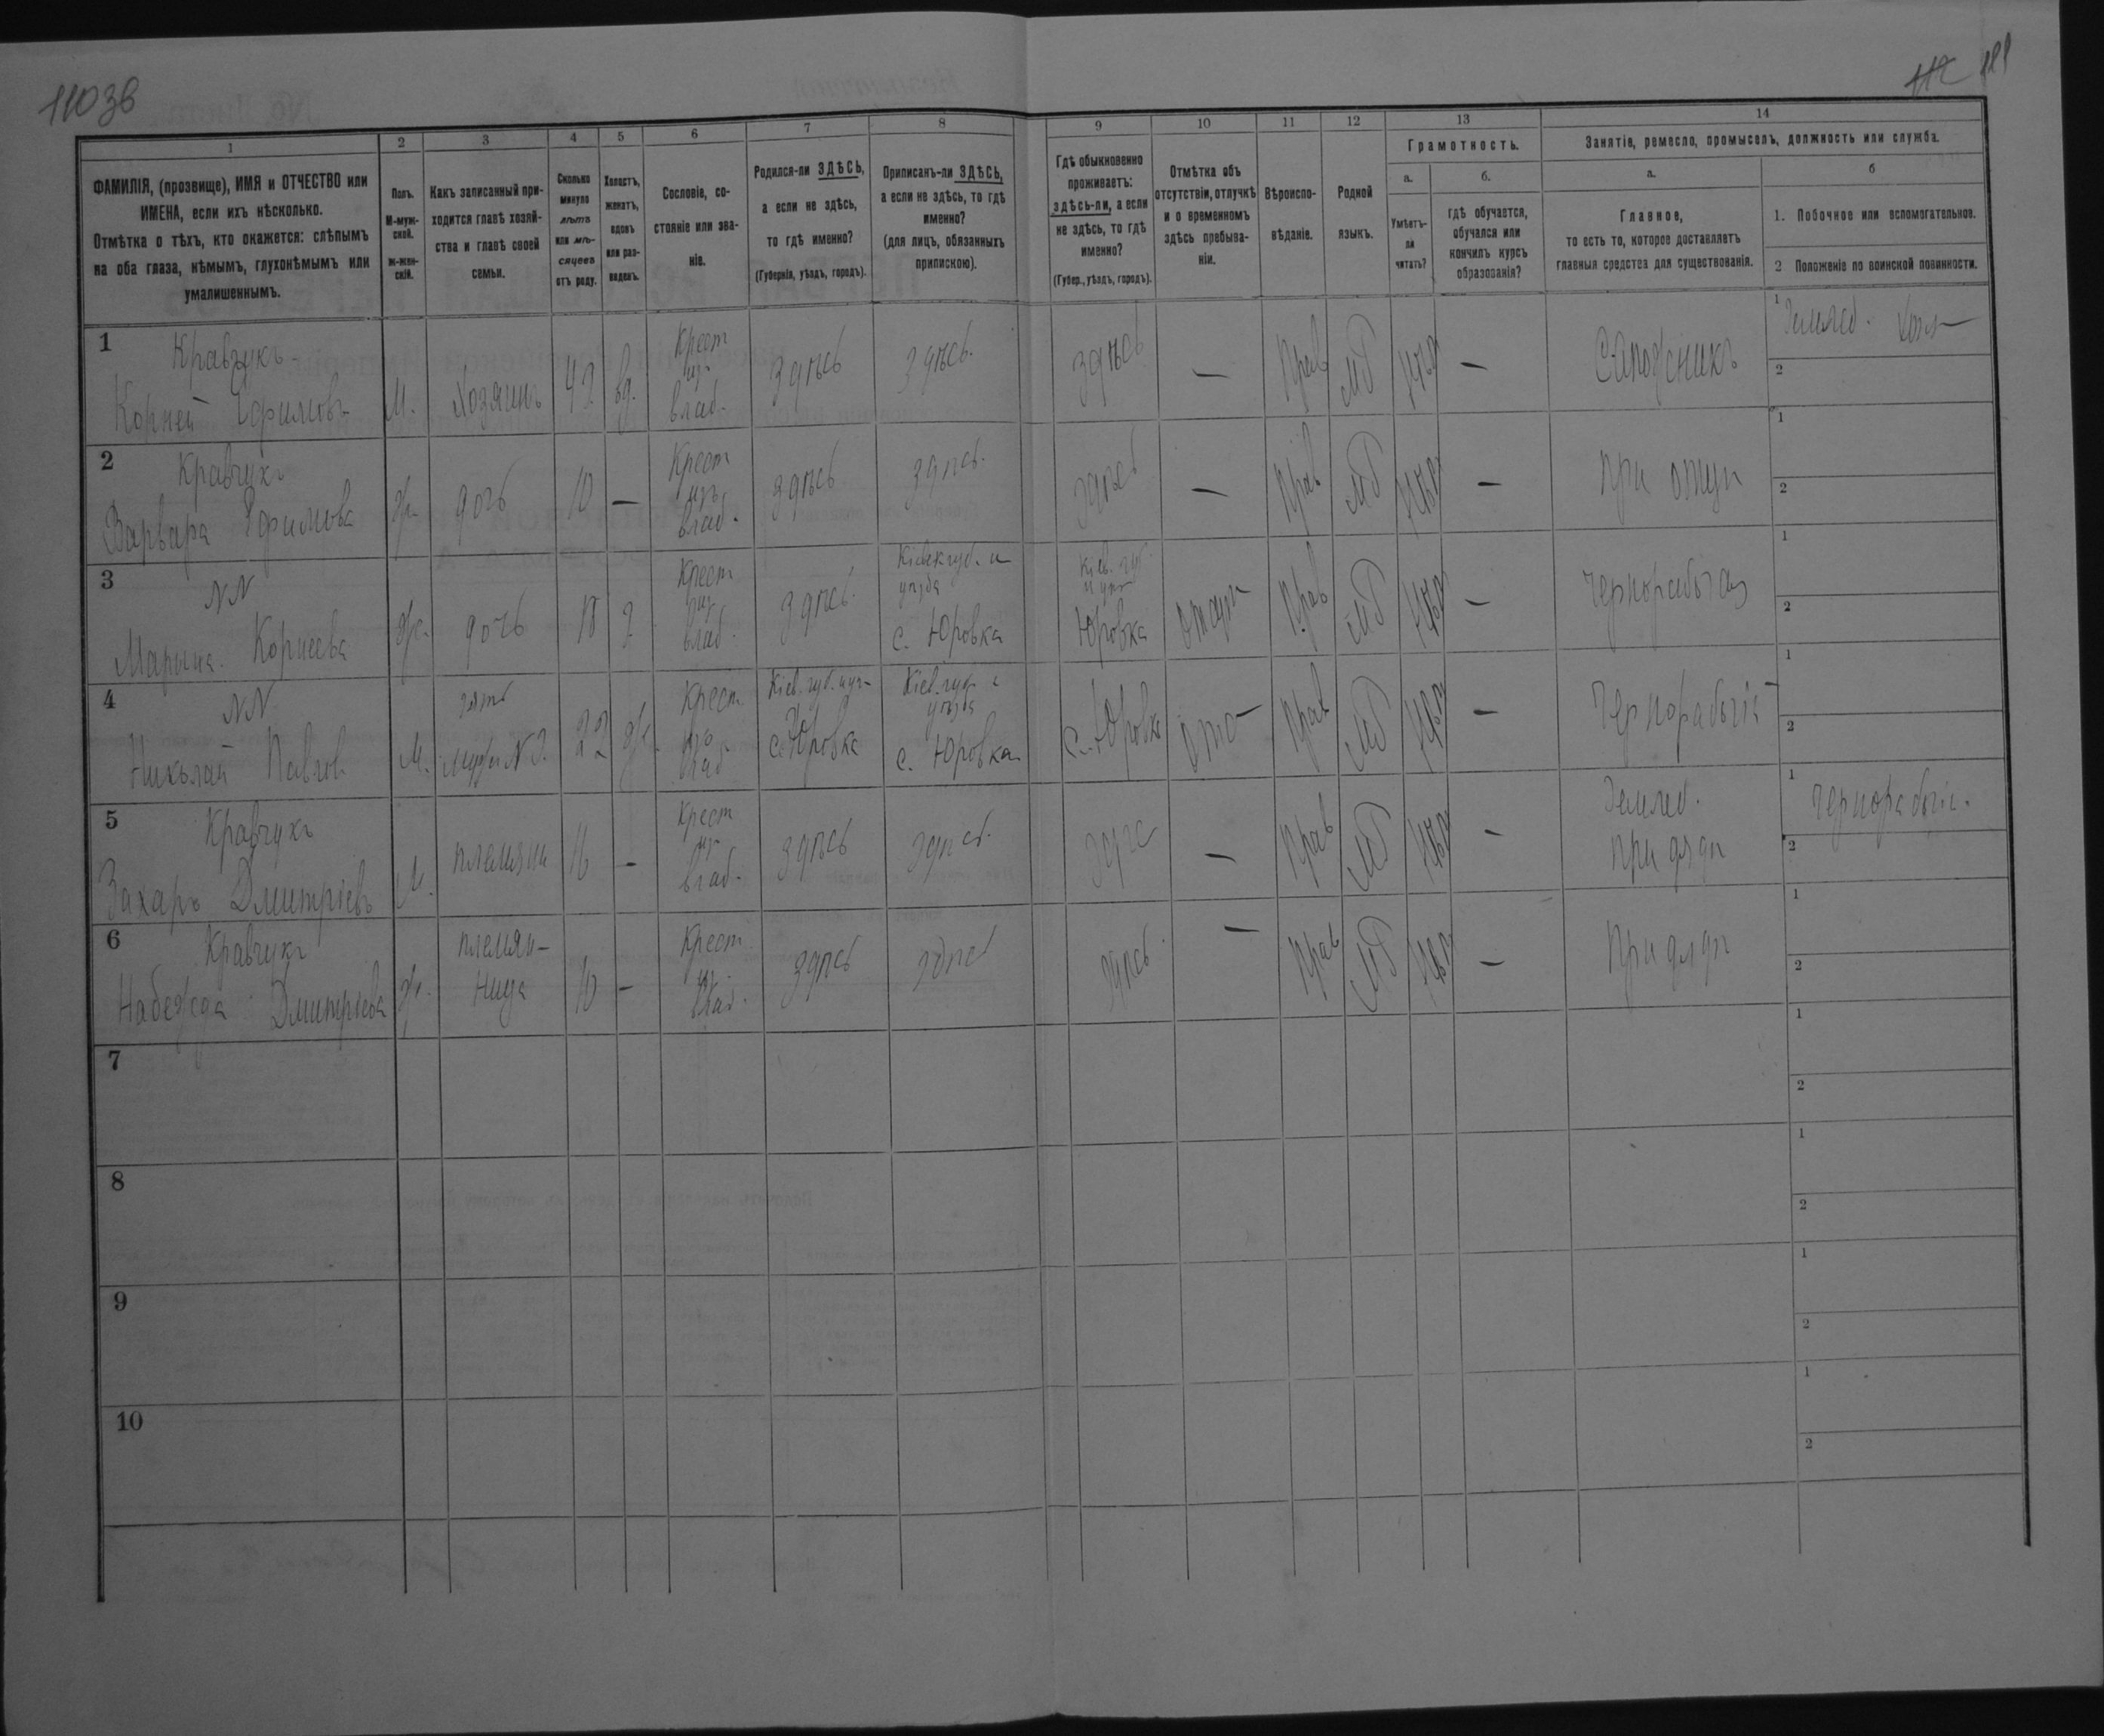 11036
112 111
1
2
3
4
5
6
7
8
9
10
11
12
13
14
ФАМИЛІЯ, (прозвище), ИМЯ и ОТЧЕСТВО или
ИМЕНА, если ихъ нѣсколько.
Отмѣтка о тѣхъ, кто окажется: слѣпымъ
на оба глаза, нѣмымъ, глухонѣмымъ или
умалишеннымъ.
Полъ.
М-муж-
ской.
Ж-жен-
скій.
Какъ записанный при-
ходится главѣ хозяй-
ства и главѣ своей
семьи.
Сколько
минуло
лѣтъ
или мѣ-
сяцевъ
отъ роду.
Холостъ,
женатъ,
вдовъ
или раз-
веденъ.
Сословіе, со-
стояніе или зва-
ніе.
Родился-ли ЗДѢСЬ,
а если не здѣсь,
то гдѣ именно?
(Губернія, уѣздъ, городъ).
Приписанъ-ли ЗДѢСЬ,
а если не здѣсь, то гдѣ
именно?
(для лицъ, обязанныхъ
припискою).
Гдѣ обыкновенно
проживаетъ:
здѣсь-ли, а если
не здѣсь, то гдѣ
именно?
(Губер., уѣздъ, городъ).
Отмѣтка объ
отсутствіи, отлучкѣ
и о временномъ
здѣсь пребыва-
ніи.
Вѣроиспо-
вѣданіе.
Родной
языкъ.
Грамотность.
а.
Умѣетъ-
ли
читать?
б.
гдѣ обучается,
обучался или
кончилъ курсъ
образованія?
Занятіе, ремесло, промыселъ, должность или служба.
а.
Главное,
то есть то, которое доставляетъ
главныя средства для существованія.
б
1. Побочное или вспомогательное.
2 Положеніе по воинской повинности.
1
Кравчукъ
Корней Ефимовъ
М.
Хозяинъ
42
вд.
Крест
из
влад.
здѣсь
здѣсь.
здѣсь
—
Прав
МР
Нѣт
—
Сапожникъ
1 Землед. хоз—
2
2
Кравчукъ
Варвара Ефимова
Ж.
дочь
10
—
Крест
изъ
влад.
здѣсь
здѣсь.
здѣсь
—
Прав
МР
Нѣт
—
при отцѣ
1
2
3
NN
Марына Корнеева
Ж.
дочь
18
Крест
из
влад.
здѣсь.
Кіевск губ. и
уѣзда
с. Юровка
Кіев. губ.
и уѣз
Юровка
Прав
МР
Нѣт
—
1
2
4
NN
Николай Павлов
М.
зять
22
Ж.
Крест
из
влад
Кіев. губ. и уѣ—
с. Юровка
Кіев. губ и
уѣзда
с. Юровка
с. Юровка
Прав
МР
Нѣт
—
1
2
5
Кравчукъ
Захаръ Дмитріевъ
М.
племян
16
—
Крест
из
влад.
здѣсь
здѣсь.
—
Прав
МР
Нѣт
—
Землед.
при дядѣ
1 Чернорабоч.
2
6
Кравчукъ
Надежда Дмитріева
Ж.
племян-
ница
10
—
Крест
из
влад.
здѣсь
здѣсь
здѣсь.
—
Прав
МР
Нѣт
—
при дядѣ
1
2
7
1
2
8
1
2
9
1
2
10
1
2